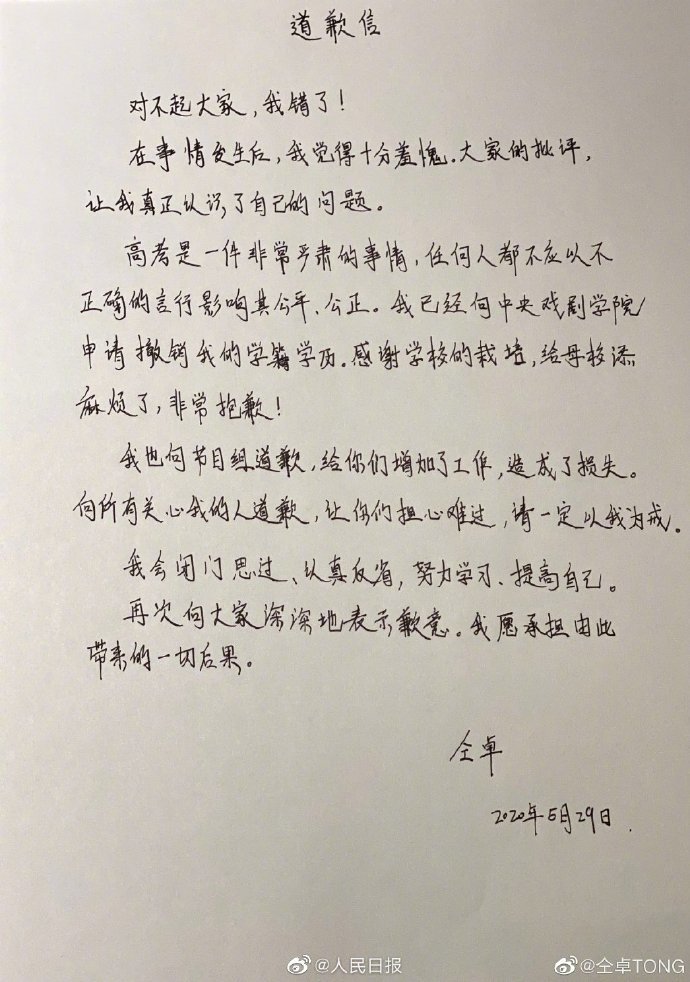 道歉信
对不起大家，我错了！
在事情发生后，我觉得十分羞愧。大家的批评，
让我真正认识了自己的问题。
高考是一件非常严肃的事情，任何人都不应以不
正确的言行影响其公平、公正。我已经向中央戏剧学院
申请撤销我的学籍学历。感谢学校的栽培，给母校添
麻烦了，非常抱歉！
我也向节目组道歉，给你们增加了工作，造成了损失。
向所有关心我的人道歉，让你们担心难过，请一定以我为戒。
我会闭门思过、认真反省，努力学习、提高自己。
再次向大家深深地表示歉意。我愿承担由此
带来的一切后果。
仝卓
2020年5月29日.
@人民日报
@仝卓TONG